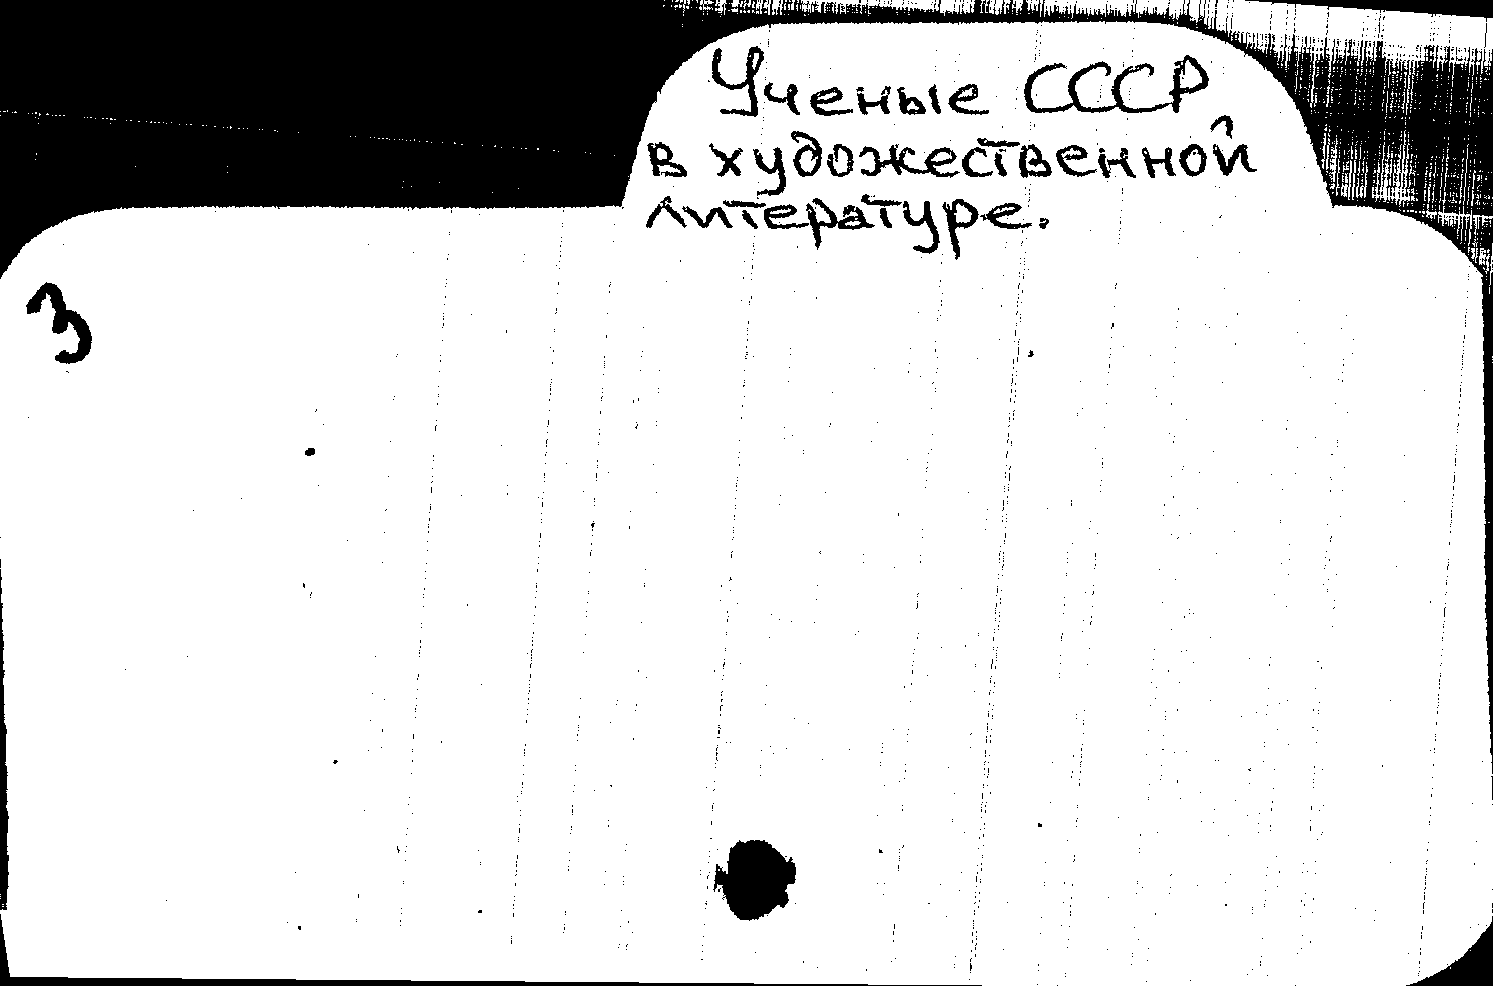 Ученые СССР
в художественной
литературе.
3